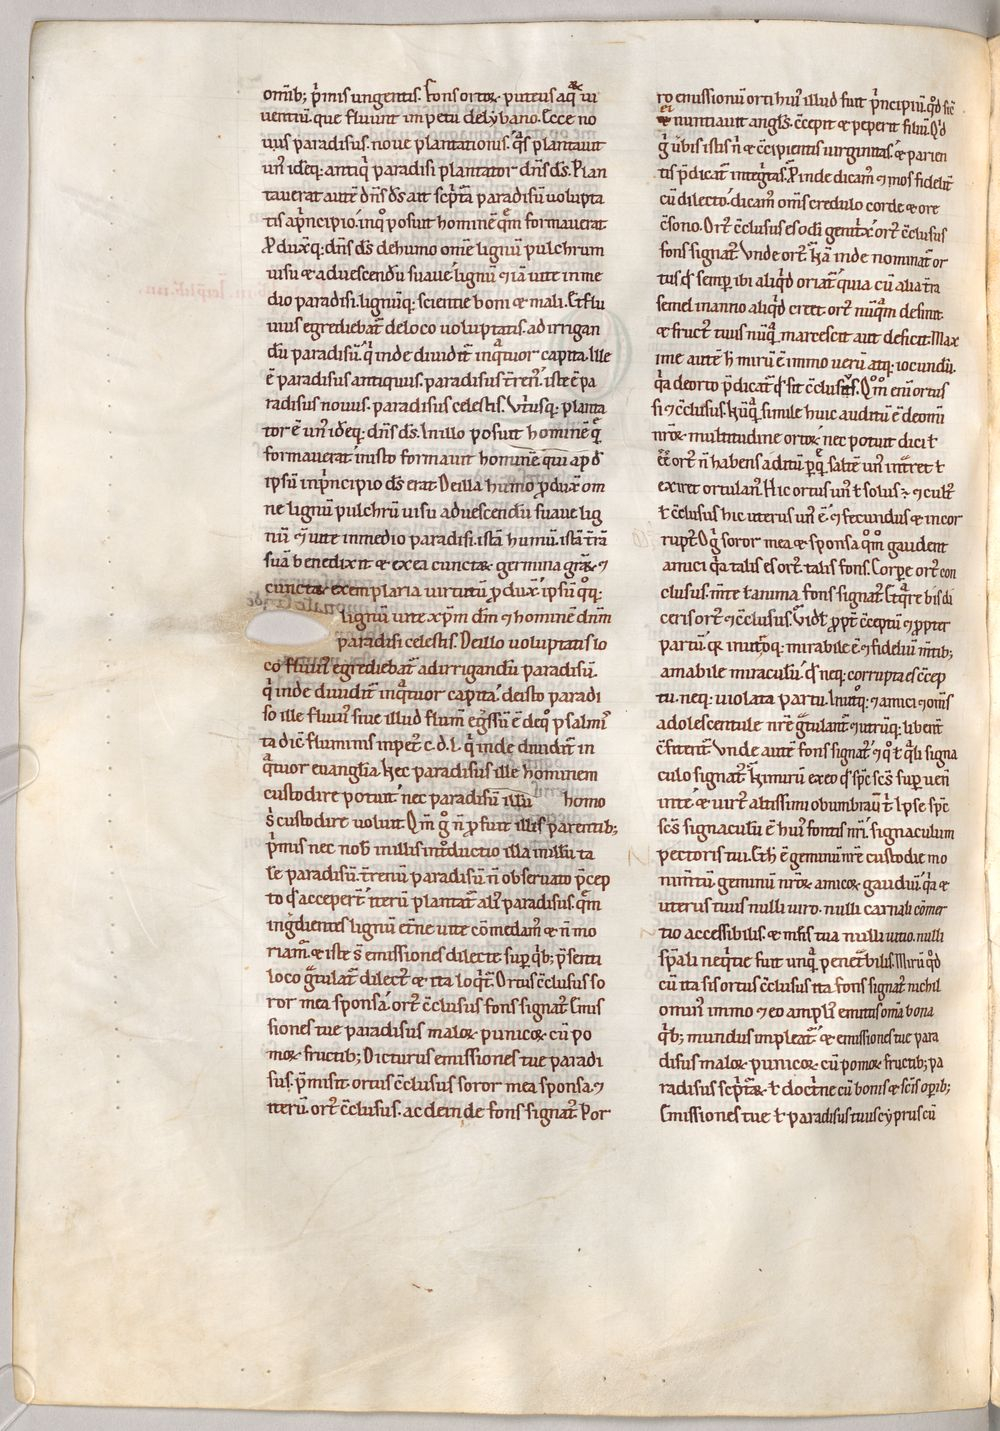 omib; p̄mis ungentis. Fons ortoꝝ. puteus aq̄ꝝ ui
uentiū. que fluunt impetu de lybano. Ecce no
uus paradisus. noue plantationis. q̄s plantauit
un᷒ idēq; antiq̄ paradisi plantator dn̄s ds̄. Plan
tauerat autē dn̄s ds̄ ait sc̄pt̄a paradisū uolupta
tis ap̄ncipio. inq̊ posuit hominē q̄m formauerat
ꝓduxq; dn̄s ds̄ de humo om̄e lignū pulchrum
uisu ⁊ aduescendū suaue. lignū ⁊iā uite in me
dio paradisi. lignūq; scientie boni ⁊ mali. Et flu
uius egrediebat᷒ de loco uoluptatis. ad irrigan
dū paradisū. q̄ inde diuidit᷒ inq̄tuor capita. Ille
ē paradisus antiquus. paradisus t̄ren᷒. iste ē pa
radisus nouus. paradisus celestis. Vt᷒usq; planta
tor ē un᷒ idēq; dn̄s ds̄. In illo posuit hominē q̄
formauerat. in isto formauit hominē qui apd̄
ipsū inp̄ncipio ds̄ erat. De illa humo ꝓdux̄ om
ne lignū pulchrū uisu aduescendū suaue lig
nū ⁊ uite in medio paradisi. istā humū. istā t̄rā
suā benedixit ⁊ ex ea cuncta germina gr̄aꝝ ⁊
cuncta exemplaria uirtutū ꝓdux̄. ipsū q̊q;
lignū uite xp̄m dm̄ ⁊ hominē dn̄m
paradisi celestis. De illo uoluptatis lo
co fluui᷒ egrediebat᷒ ad irrigandū paradisū.
q̄ inde diuidit᷒ inq̄tuor capita. de isto paradi
so ille fluui᷒ siue illud flum̄ eḡssū ē de q̊ psalmis
ta dic̄. fluminis inpet᷒ c. d. l. q̄ inde diuidit᷒ in
q̄tuor euanglīa. Hec paradisus ille hominem
custodire potuit. nec paradisū illū homo
s̄ custodire uoluit. Qm̄ g̊ n̄ ꝓfuit illis parentib;
p̄mis nec nob̄ in illis int̄ductio illa in illū ta
lē paradisū. t̄renū paradisū. n̄ obseruato p̄cep
to qd̄ accepert̄. iterū plantat᷒ ali᷒ paradisus. q̄m
ing̊dientes lignū et̄ne uite comedam᷒ ⁊ n̄ mo
riam᷒. ⁊ iste s̄ emissiones dilecte sup̄ q̄b; p̄senti
loco gr̄tulat᷒ dilect᷒ ⁊ ita loq̄t᷒. Ortus c̄clusus so
ror mea sponsa. ort᷒ c̄clusus fons signat᷒. Emis
siones tue paradisus maloꝝ punicoꝝ cū po
moꝝ fructib; Dicturus emissiones tue paradi
sus. p̄misit. ortus c̄clusus soror mea sponsa. ⁊
iterū. ort᷒ c̄clusus. ac deinde fons signat᷒. Por
ro emissionū orti hui᷒ illud fuit p̄ncipiū. qd̄ sic̄
ei nuntiauit angls̄. c̄cepit ⁊ peperit filiū. Q̊d
g̊ ubi sistis n̄ ⁊ c̄cipientis uirginitas. ⁊ parien
tis p̄dicat᷒ integ̊tas. Proinde dicam᷒ ⁊ nos fidelit᷒
cū dilecto. dicam᷒ oms̄ credulo corde ⁊ ore
c̄sono. Ort᷒ c̄clusus es o di genitx̄. ort᷒ c̄clusus
fons signat᷒. Vnde ort᷒. Hā inde nominat᷒ or
tus qd̄ semp̄ ibi aliq̊d oriat᷒. quia cū alia t̄ra
semel in anno aliq̊d creet. ort᷒ nūq̄m desinit.
⁊ fruct᷒ tuus nūq̄ marcescit aut deficit. Max
ime autē h̄ mirū ē immo uerū atq; iocundū.
q̄a de orto p̄dicat᷒ qd̄ sit c̄clusus. Qm̊ eni ortus
si ⁊ c̄clusus. Hūq̄ simile huic auditū ē de omi
nr̄oꝝ multitudine ortoꝝ. nec potuit dici ł
ee᷒ ort᷒ n̄ habens aditū. p̄ q̄ saltē un᷒ intret ł
exiret ortulan᷒. Hic ortus un᷒ ł solus ē ⁊ cult᷒
ł c̄clusus. hic uterus un᷒ ē ⁊ fecundus ⁊ incor
rupt᷒. O g̊ soror mea ⁊ sponsa qm̊ gaudent
amici q̄a talis es ort᷒. talis fons. Corpe ort᷒ con
clusus. mt̄e ł anima fons signat᷒. Et q̄re bis di
ceris ort᷒ ⁊ c̄clusus. Vidłt ꝓpt᷒ c̄ceptū ⁊ ꝓpter
partū. qꝛ in ut᷒q; mirabile ē ⁊ fideliū m̄tib;
amabile miraculū. qd̄ neq; corrupta es c̄cep
tu. neq; uiolata partu. In ut᷒q; ⁊ amici ⁊ om̄s
adolescentule nr̄e gr̄tulant᷒ ⁊ utrūq; libent᷒
c̄fitent᷒. Vnde autē fons signat᷒. ⁊ q̊ ł q̄li signa
culo signat᷒. Nimirū ex eo qd̄ sp̄c sc̄s sup̄uen̄
in te ⁊ uirt᷒ altissimi obumbrau̅ t̄. Ipse sp̄c
sc̄s signaculū ē hui᷒ fontis nr̄i. signaculum
pectoris tui. Et h̄ ē geminū nr̄e custodie mo
nim̄tū. geminū nr̄oꝝ amicoꝝ gaudiū. q̄a ⁊
uterus tuus nulli uiro. nulli carnali comer
tio accessibilis. ⁊ m̄s tua nulli uitio. nulli
sp̄ali neq̄tie fuit unq̄ penet̄bilis. Mirū q̊d
cū ita sis ortus c̄clusus ita fons signat᷒ nichil
omin᷒ immo ⁊ eo ampli᷒ emittis om̄ia bona
q̄b; mundus impleat᷒. ⁊ emissiones tue para
disus maloꝝ punicoꝝ. cū pomoꝝ fructib; pa
radisus sc̄pt̄aꝝ. ł doct̄ne cū bonis ⁊ sc̄is opib;
Emissiones tue ł paradisus tuus cyprus cū